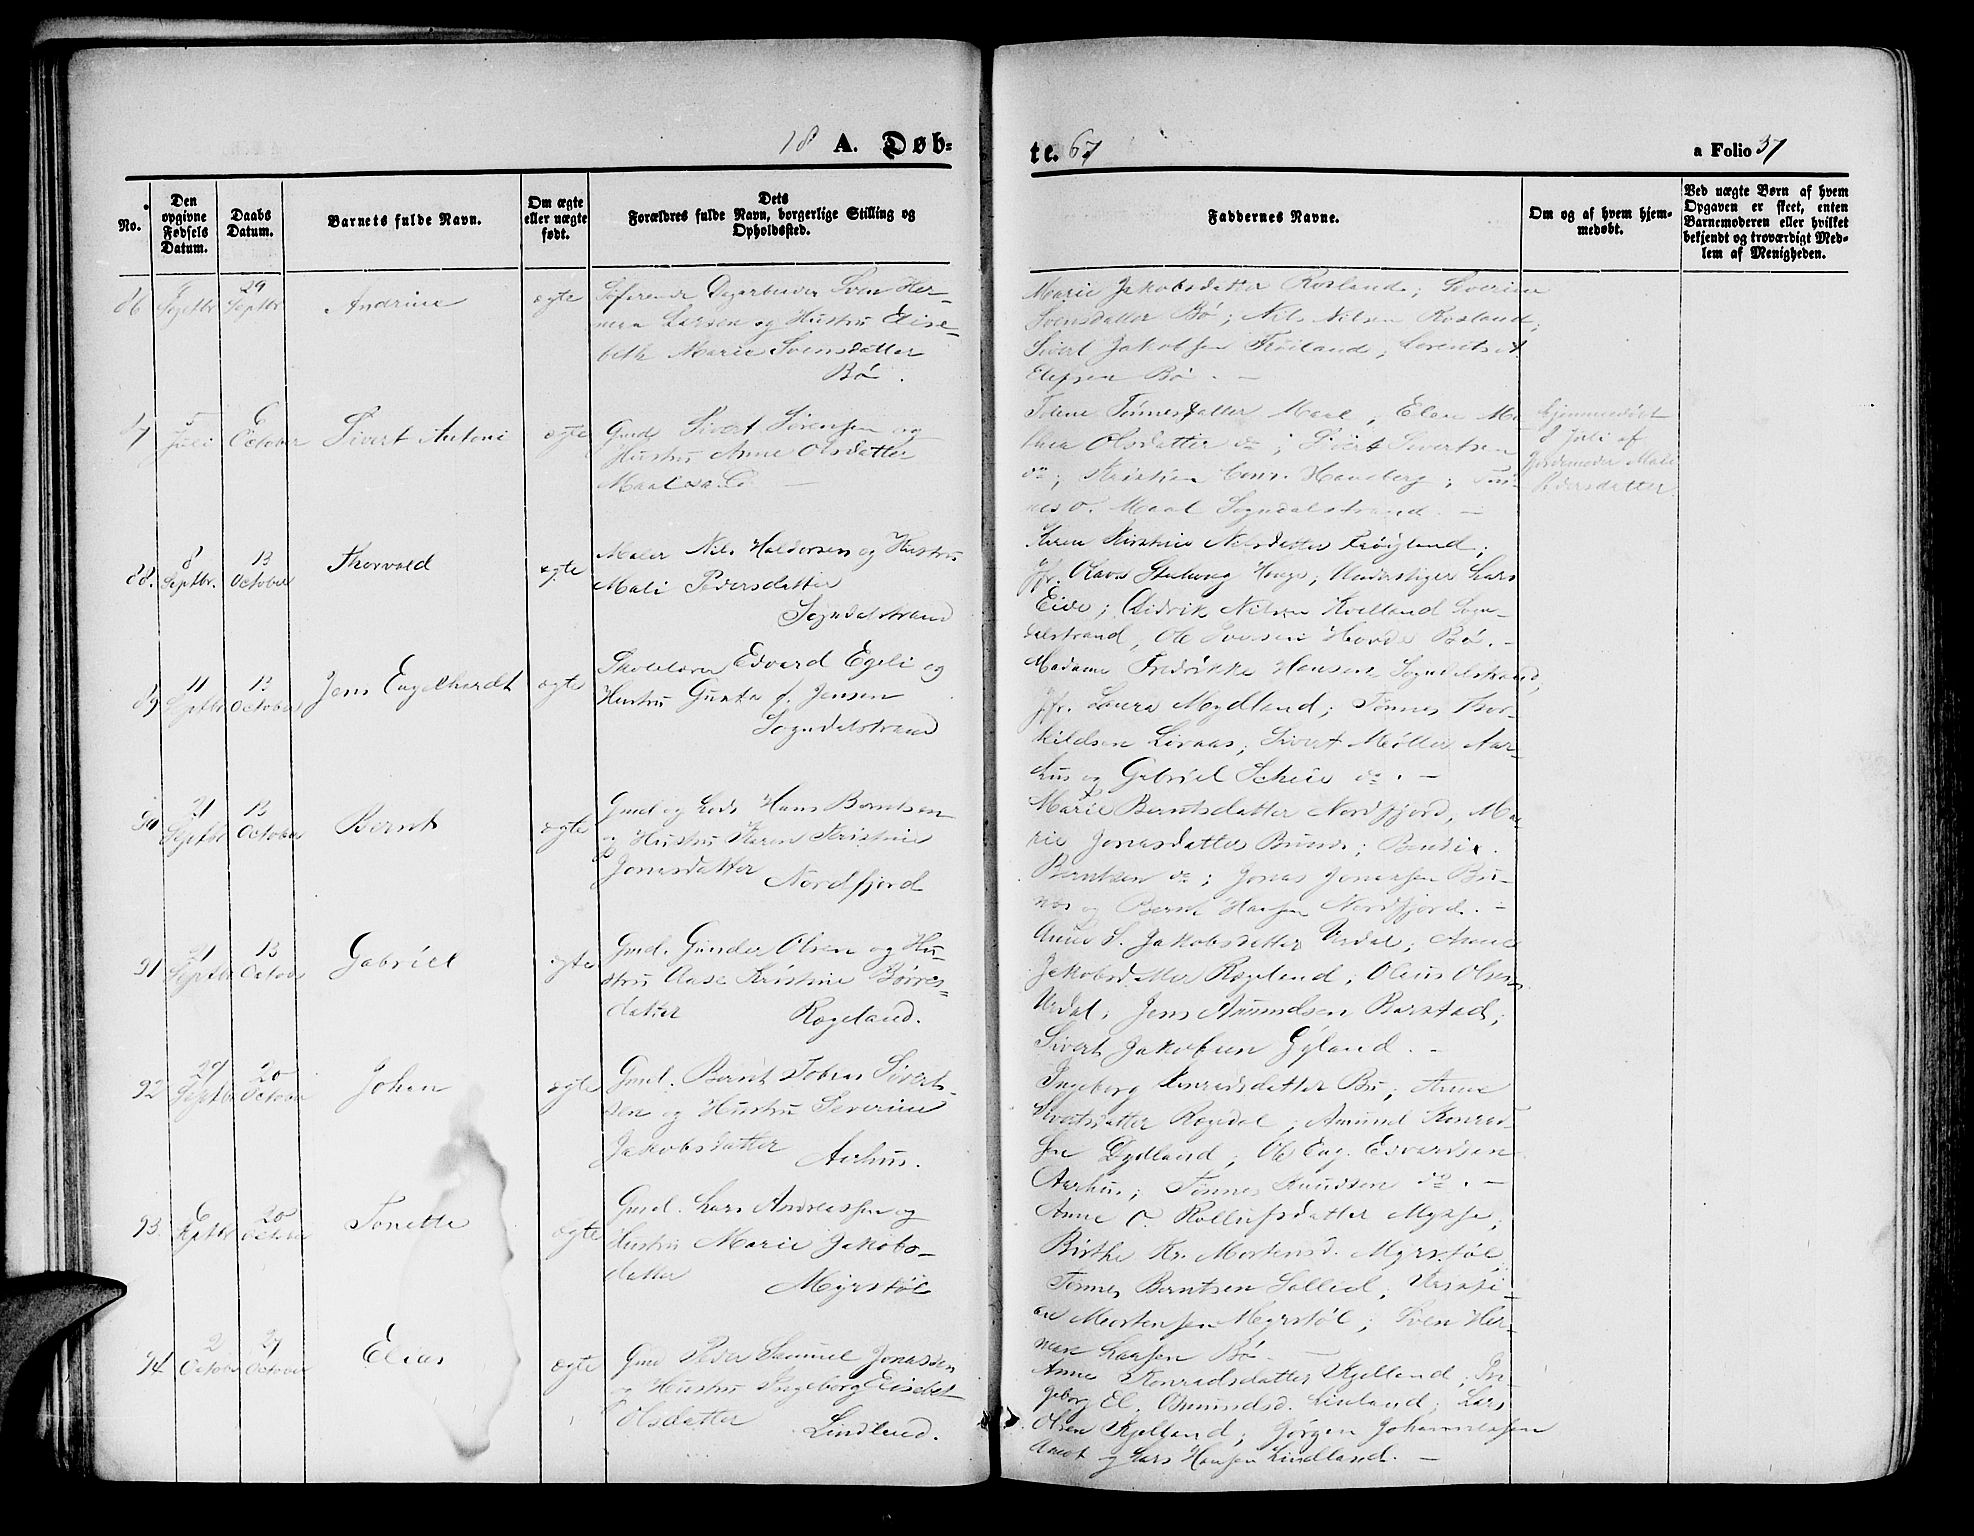 18 A. Døb-
te. 67
a Folio 37
No.
Den opgivne Fødsels Datum.
Daabs Datum.
Barnets fulde Navn.
Om ægte eller uægte født.
Dets Forældres fulde Navn, borgerlige Stilling og Opholdssted.
Faddernes Navne.
Om og af hvem hjem-
medøbt.
Ved uægte Børn af hvem
Opgaven er skeet, enten
Barnemoderen eller hvilket
bekjendt og troværdigt Med-
lem af Menigheden.
86 Septbr 29 Septbr Andrine ægte
Søfarende Dagarbeider Sven Her-
man Larsen og Hustru Elise-
beth Marie Svensdatter
Bø.
Marie Jakobsdatter Rosland; Severine
Svensdatter Bø; Nils Nilsen Rosland;
Sivert Jakobsen Frøiland; Lorents
Elefsen Bø. —
87 5 Juli 6 October Sivert Antoni ægte
Gmd Sivert Sørensen og
Hustru Anne Olsdatter
Maal
Tolene Tønnesdatter Maal; Elen Ma-
Olsdatter do; Sivert Sivertsen
do; Kristien Haneberg; Tøn-
nes O. Maal Sogndalstrand. —
hjemmedøbt
8 Juli af
Jordemoder Mali
Pedersdatter
88. 8 Septbr. 13 October Thorvald ægte
Maler Nils Haldorsen og Hustru
Mali Pedersdatter
Sogndalstrand
Karen Kirstine Nilsdatter Frøyland;
Jfr. Olava Hauge; Understiger Lars
Eide; Didrik Nilsen Kvelland Sogn-
dalstrand, Ole Iversen Hovde Bø. —
89 11 Septbr 13 October Jens Engelhardt ægte
Skolelærer Edvard Egeli og
Hustru Gunta f. Jensen
Sogndalstrand
Madame Fredrikke Hansen Sogndalstrand;
Jfr. Laura Mydland; Tønnes Thor-
kildsen Livaas; Sivert Møller Aar-
hus og Gabriel Scheie do. —
90 21 Septbr 13 October Bernt ægte
Gmd og Lods Hans Berntsen
og Hustru Karen Kristine
Jonasdatter Nordfjord
Marie Berntsdatter Nordfjord, Ma-
rie Jonasdatter Bunes; Bendix
Berntsen do; Jonas Jonassen Bu-
nes og Bernt Hansen Nordfjord. —
91 21 Septbr 13 Octobr Gabriel ægte
Gmd. Gunder Olsen og Hu-
stru Aase Kristine Børres-
datter Rægeland.
Anne S. Jakobsdatter Urdal; Anne
Jakobsdatter Rægeland; Olaus Olsen
Urdal; Jens Amundsen Barstad;
Sivert Jakobsen Gyland. —
92 29 Septbr 20 October Johan ægte
Gmd. Bernt Tobias Sivert-
sen og Hustru Severine
Jakobsdatter Aarhus.
Ingeborg Konradsdatter Bø; Anne
Sivertsdatter Rægdal; Amund Konrad-
sen Dydland; Ole Eng. Edvardsen
Aarhus; Tønnes Knudsen do. —
93. 6 Septbr 20 October Tonette ægte
Gmd. Lars Andreassen og
Hustru Marie Jakobs-
datter
Myrstøl
Anne O. Rollufsdatter Mysse;
Birthe Kr. Mortensd. Myrstøl
Tønnes Berntsen Sollid;
Mortensen Myrstøl; Sven Her-
man Larsen Bø. —
94 2 October 27 October Elias ægte
Gmd Peder Samuel Jonassen
og Hustru Ingeborg Elisebet
Olsdatter
Lindland.
Anne Konradsdatter Kjelland; In-
geborg El. Omundsd. Linland; Lars
Olsen Kjelland; Jørgen Johannessen
Aamot og Lars Hansen Lindland. —